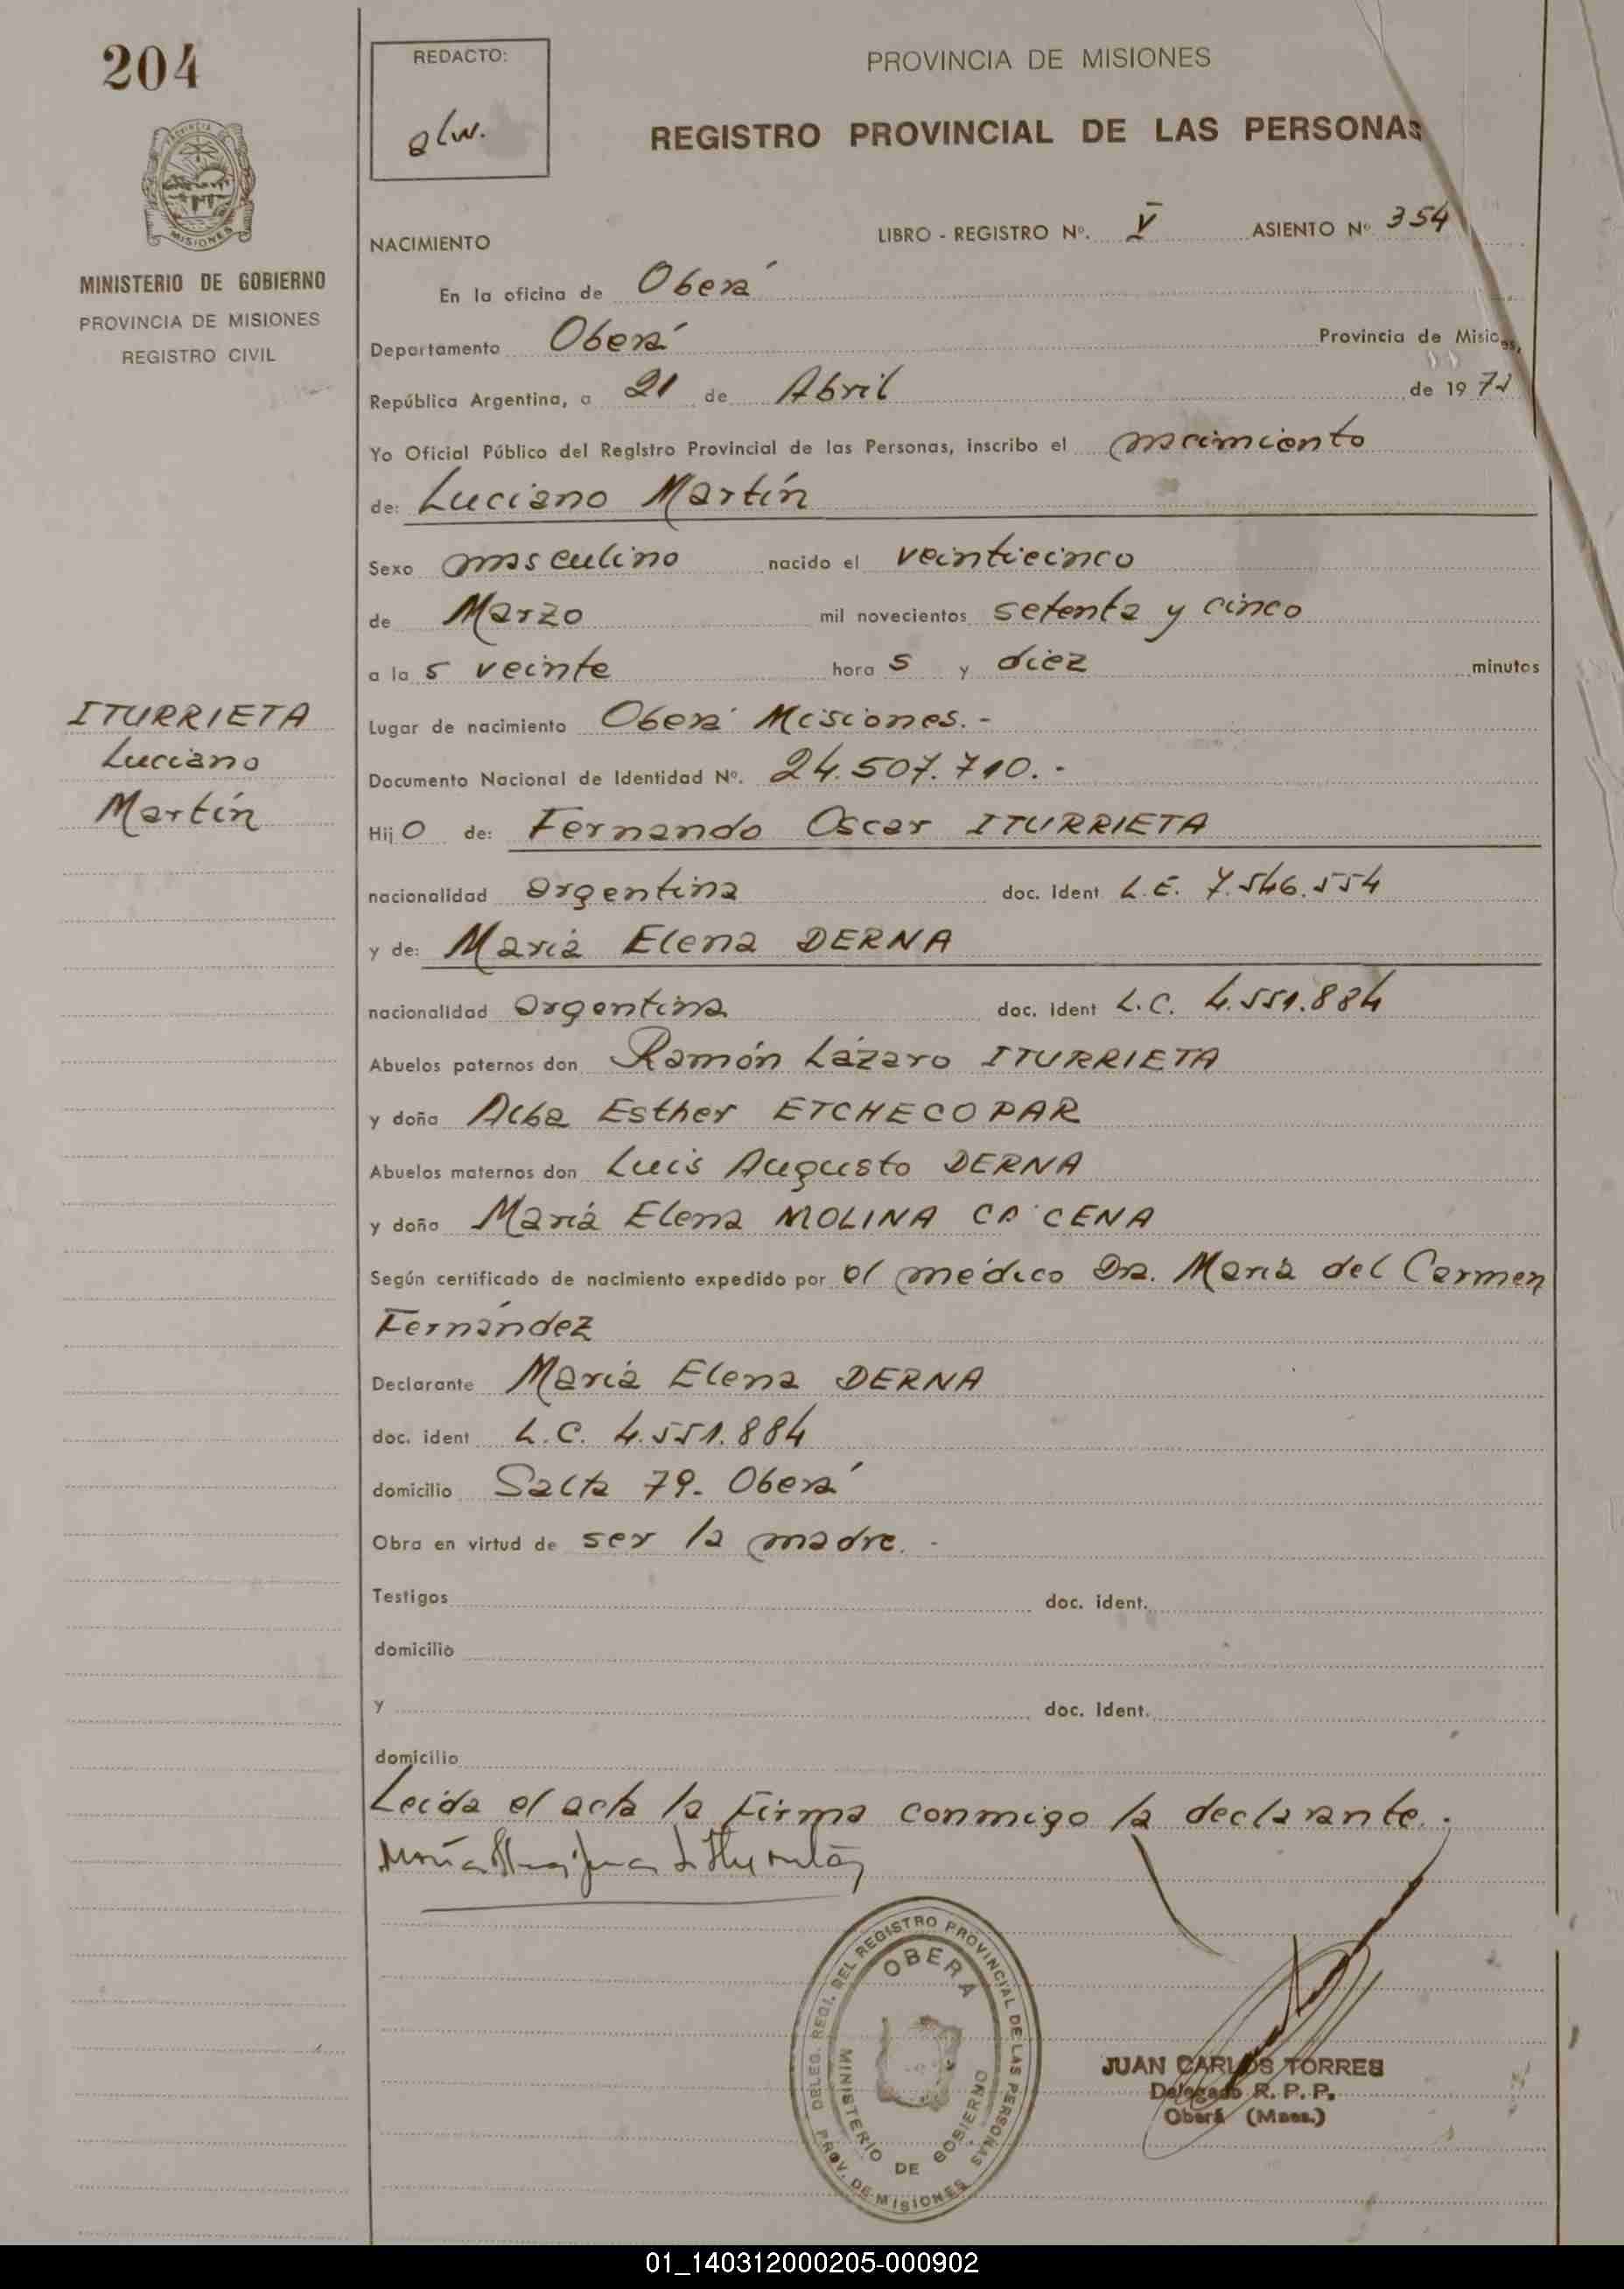 204
REDACTO:
alw.
PROVINCIA DE MISIONES
REGISTRO PROVINCIAL DE LAS PERSONAS
PROVINCIA DE MISIONES
MISIONES
MINISTERIO DE GOBIERNO
PROVINCIA DE MISIONES
REGISTRO CIVIL
NACIMIENTO
LIBRO - REGISTRO Nº. V ASIENTO Nº 354
En la oficina de Oberá
Departamento Oberá Provincia de Misiones,
República Argentina, a 21 de Abril de 197
Yo Oficial Público del Registro Provincial de las Personas, inscribo el nacimiento
de: Luciano Martín
Sexo masculino nacido el veinticinco
de Marzo mil novecientos setenta y cinco
a la s veinte hora s y diez minutos
Lugar de nacimiento Oberá Misiones.-
Documento Nacional de Identidad Nº. 24.507.710.-
Hij o de: Fernando Oscar ITURRIETA
nacionalidad argentina doc. Ident L.E. 7.546.554
y de: María Elena DERNA
nacionalidad argentina doc. Ident L.C. 4.551.884
Abuelos paternos don Ramón Lázaro ITURRIETA
y doña Alba Esther ETCHECOPAR
Abuelos maternos don Luis Augusto DERNA
y doña María Elena MOLINA
Según certificado de nacimiento expedido por el médico Dra. María del Carmen
Fernández
Declarante María Elena DERNA
doc. ident L.C. 4.551.884
domicilio Salta 79. Oberá
Obra en virtud de ser la madre.-
Testigos doc. ident.
domicilio
y doc. Ident.
domicilio
Leída el acta la firma conmigo la declarante.
ITURRIETA
Luciano
Martín
DELEG. REGI. DEL REGISTRO PROVINCIAL DE LAS PERSONAS
PROV. DE MISIONES
OBERA
MINISTERIO DE GOBIERNO
JUAN CARLOS TORRES
Delegado R. P. P.
Oberá (Mnes.)
01_140312000205-000902